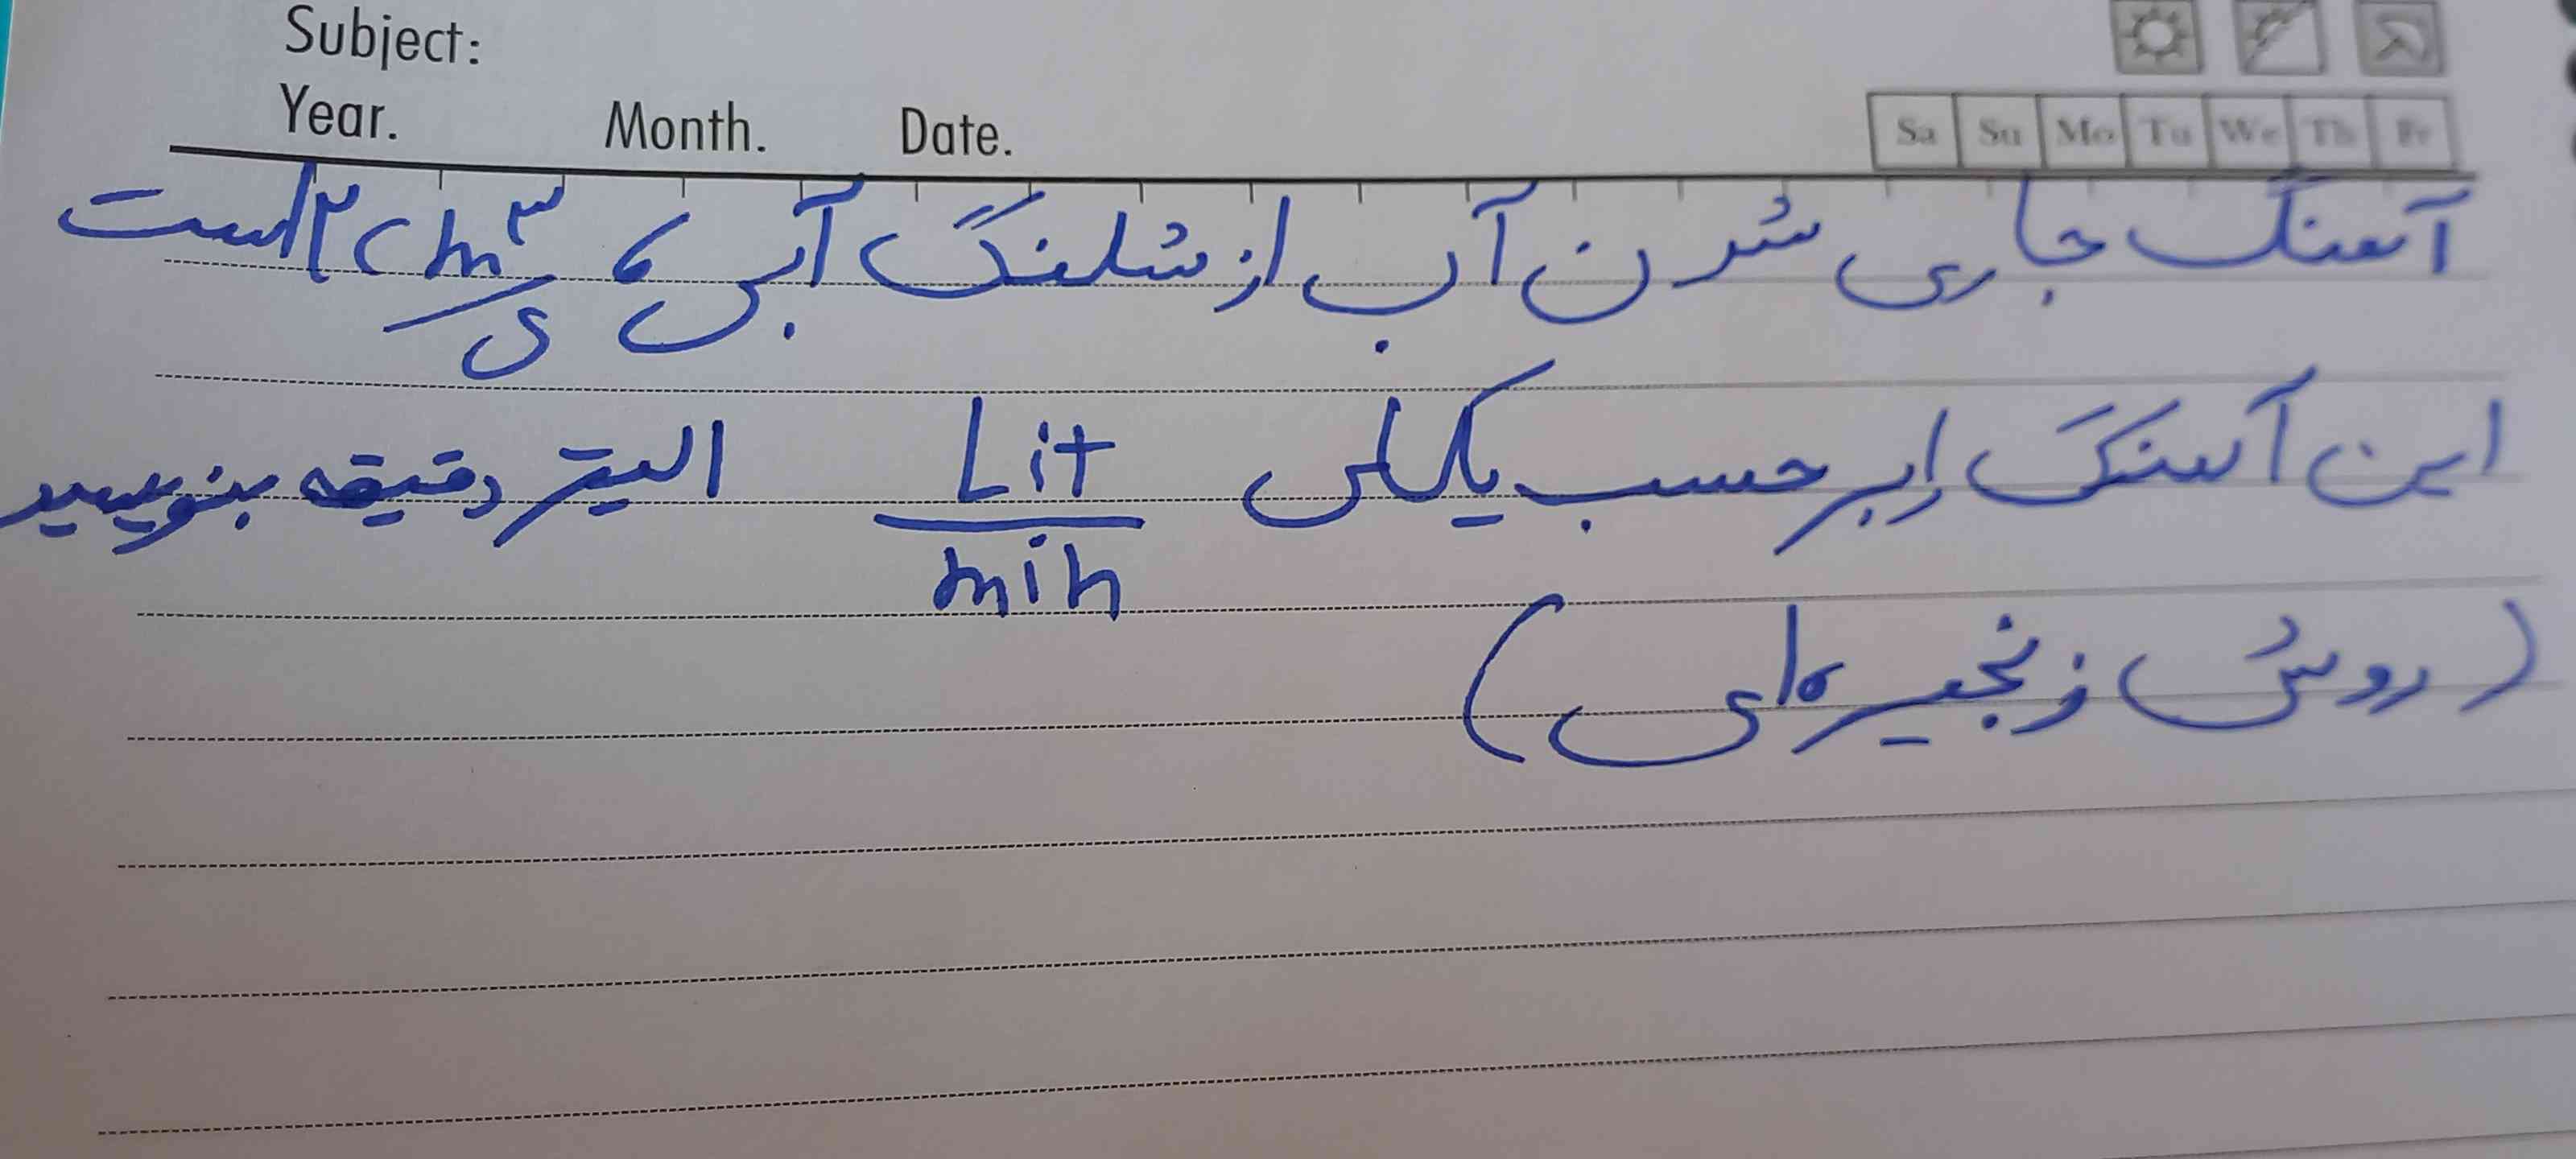 Subject:
Year. Month. Date.
Sa Su Mo Tu We Th Fr
آهنگ جاری شدن آب از شلنگ آبی، ۲ cm³/s است
این آهنگ را بر حسب یکای Lit/min الیتر دقیقه بنویسید
(روش زنجیره‌ای)